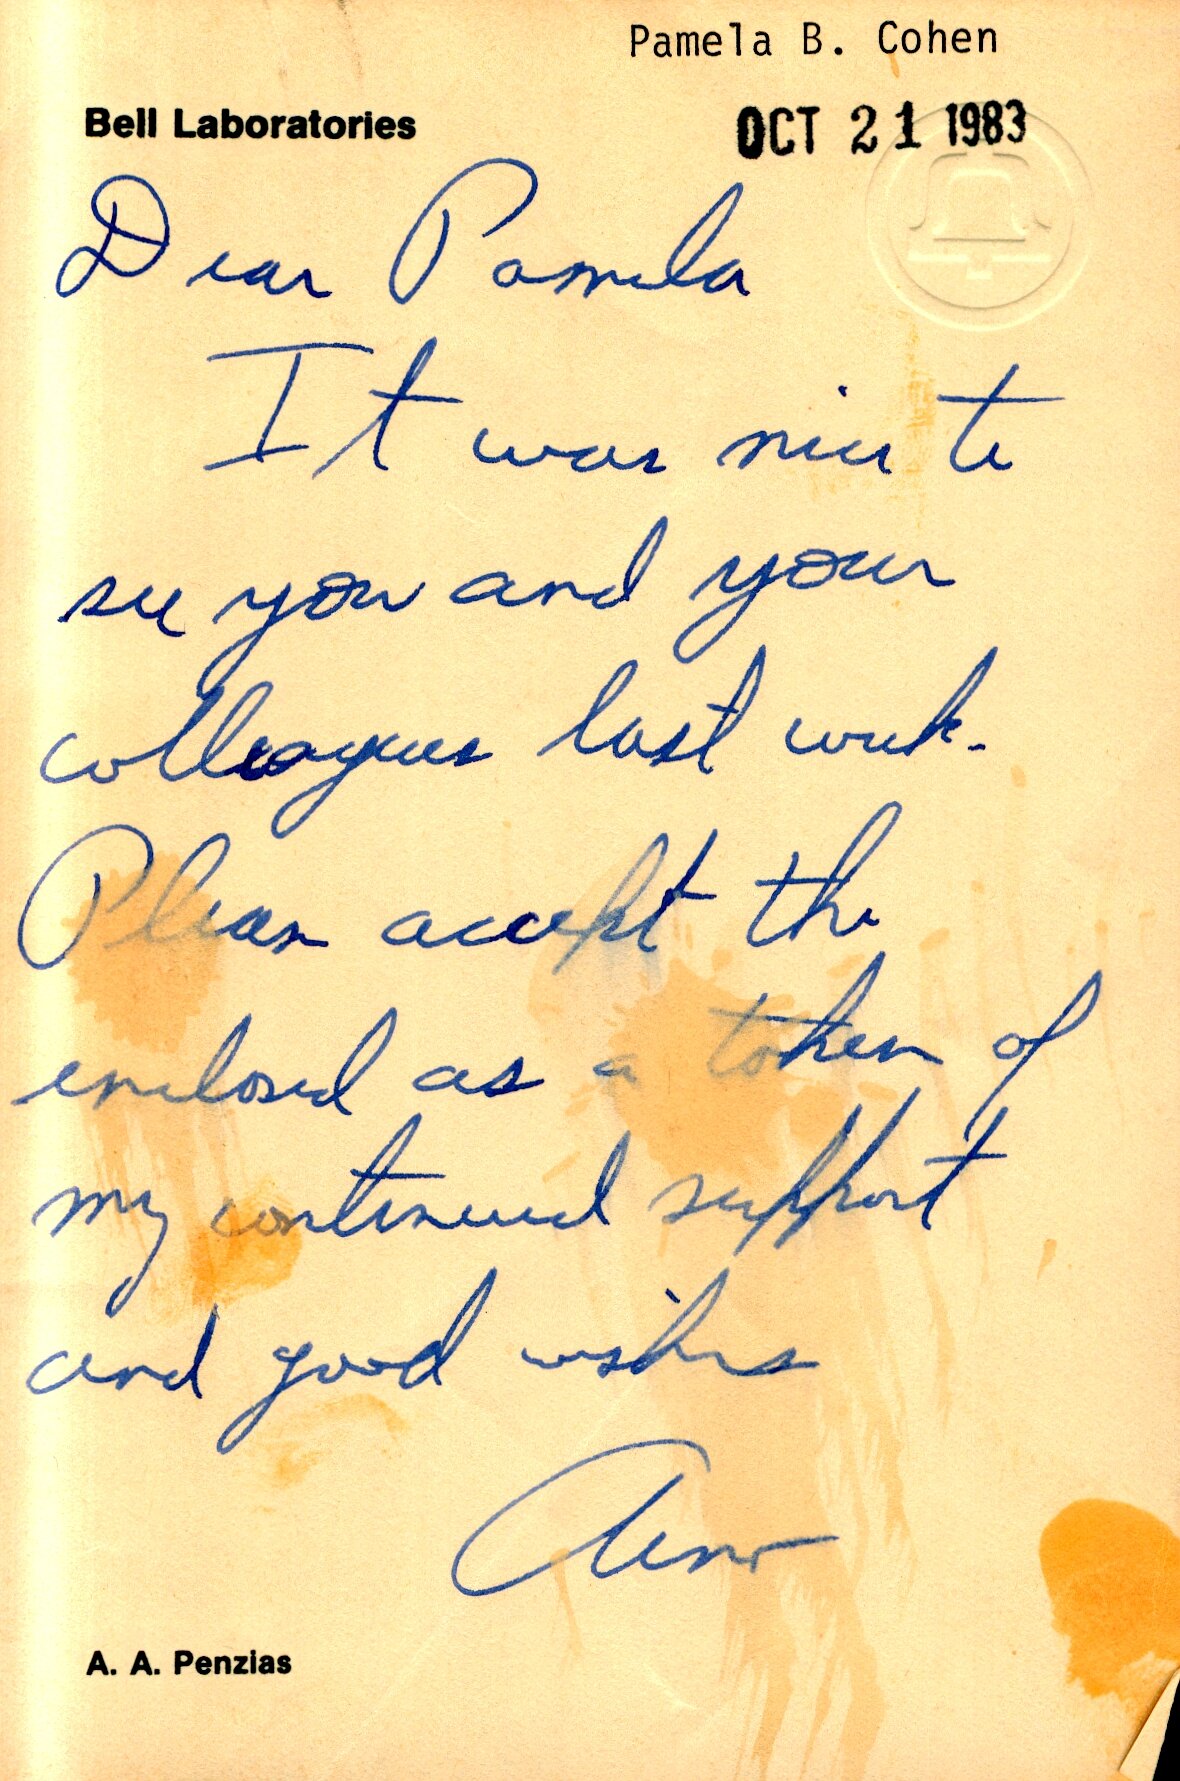 Pamela B. Cohen
Bell Laboratories
OCT 21 1983
Dear Pamela
It was nice to
see you and your
colleagues last week.
Please accept the
enclosed as a token of
my continued support
and good wishes
Arno
A. A. Penzias